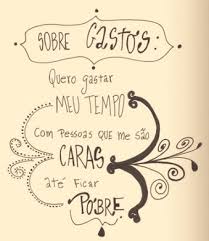 SOBRE GASTOS:
Quero gastar
MEU TEMPO
com pessoas que me são
CARAS
até ficar
POBRE.